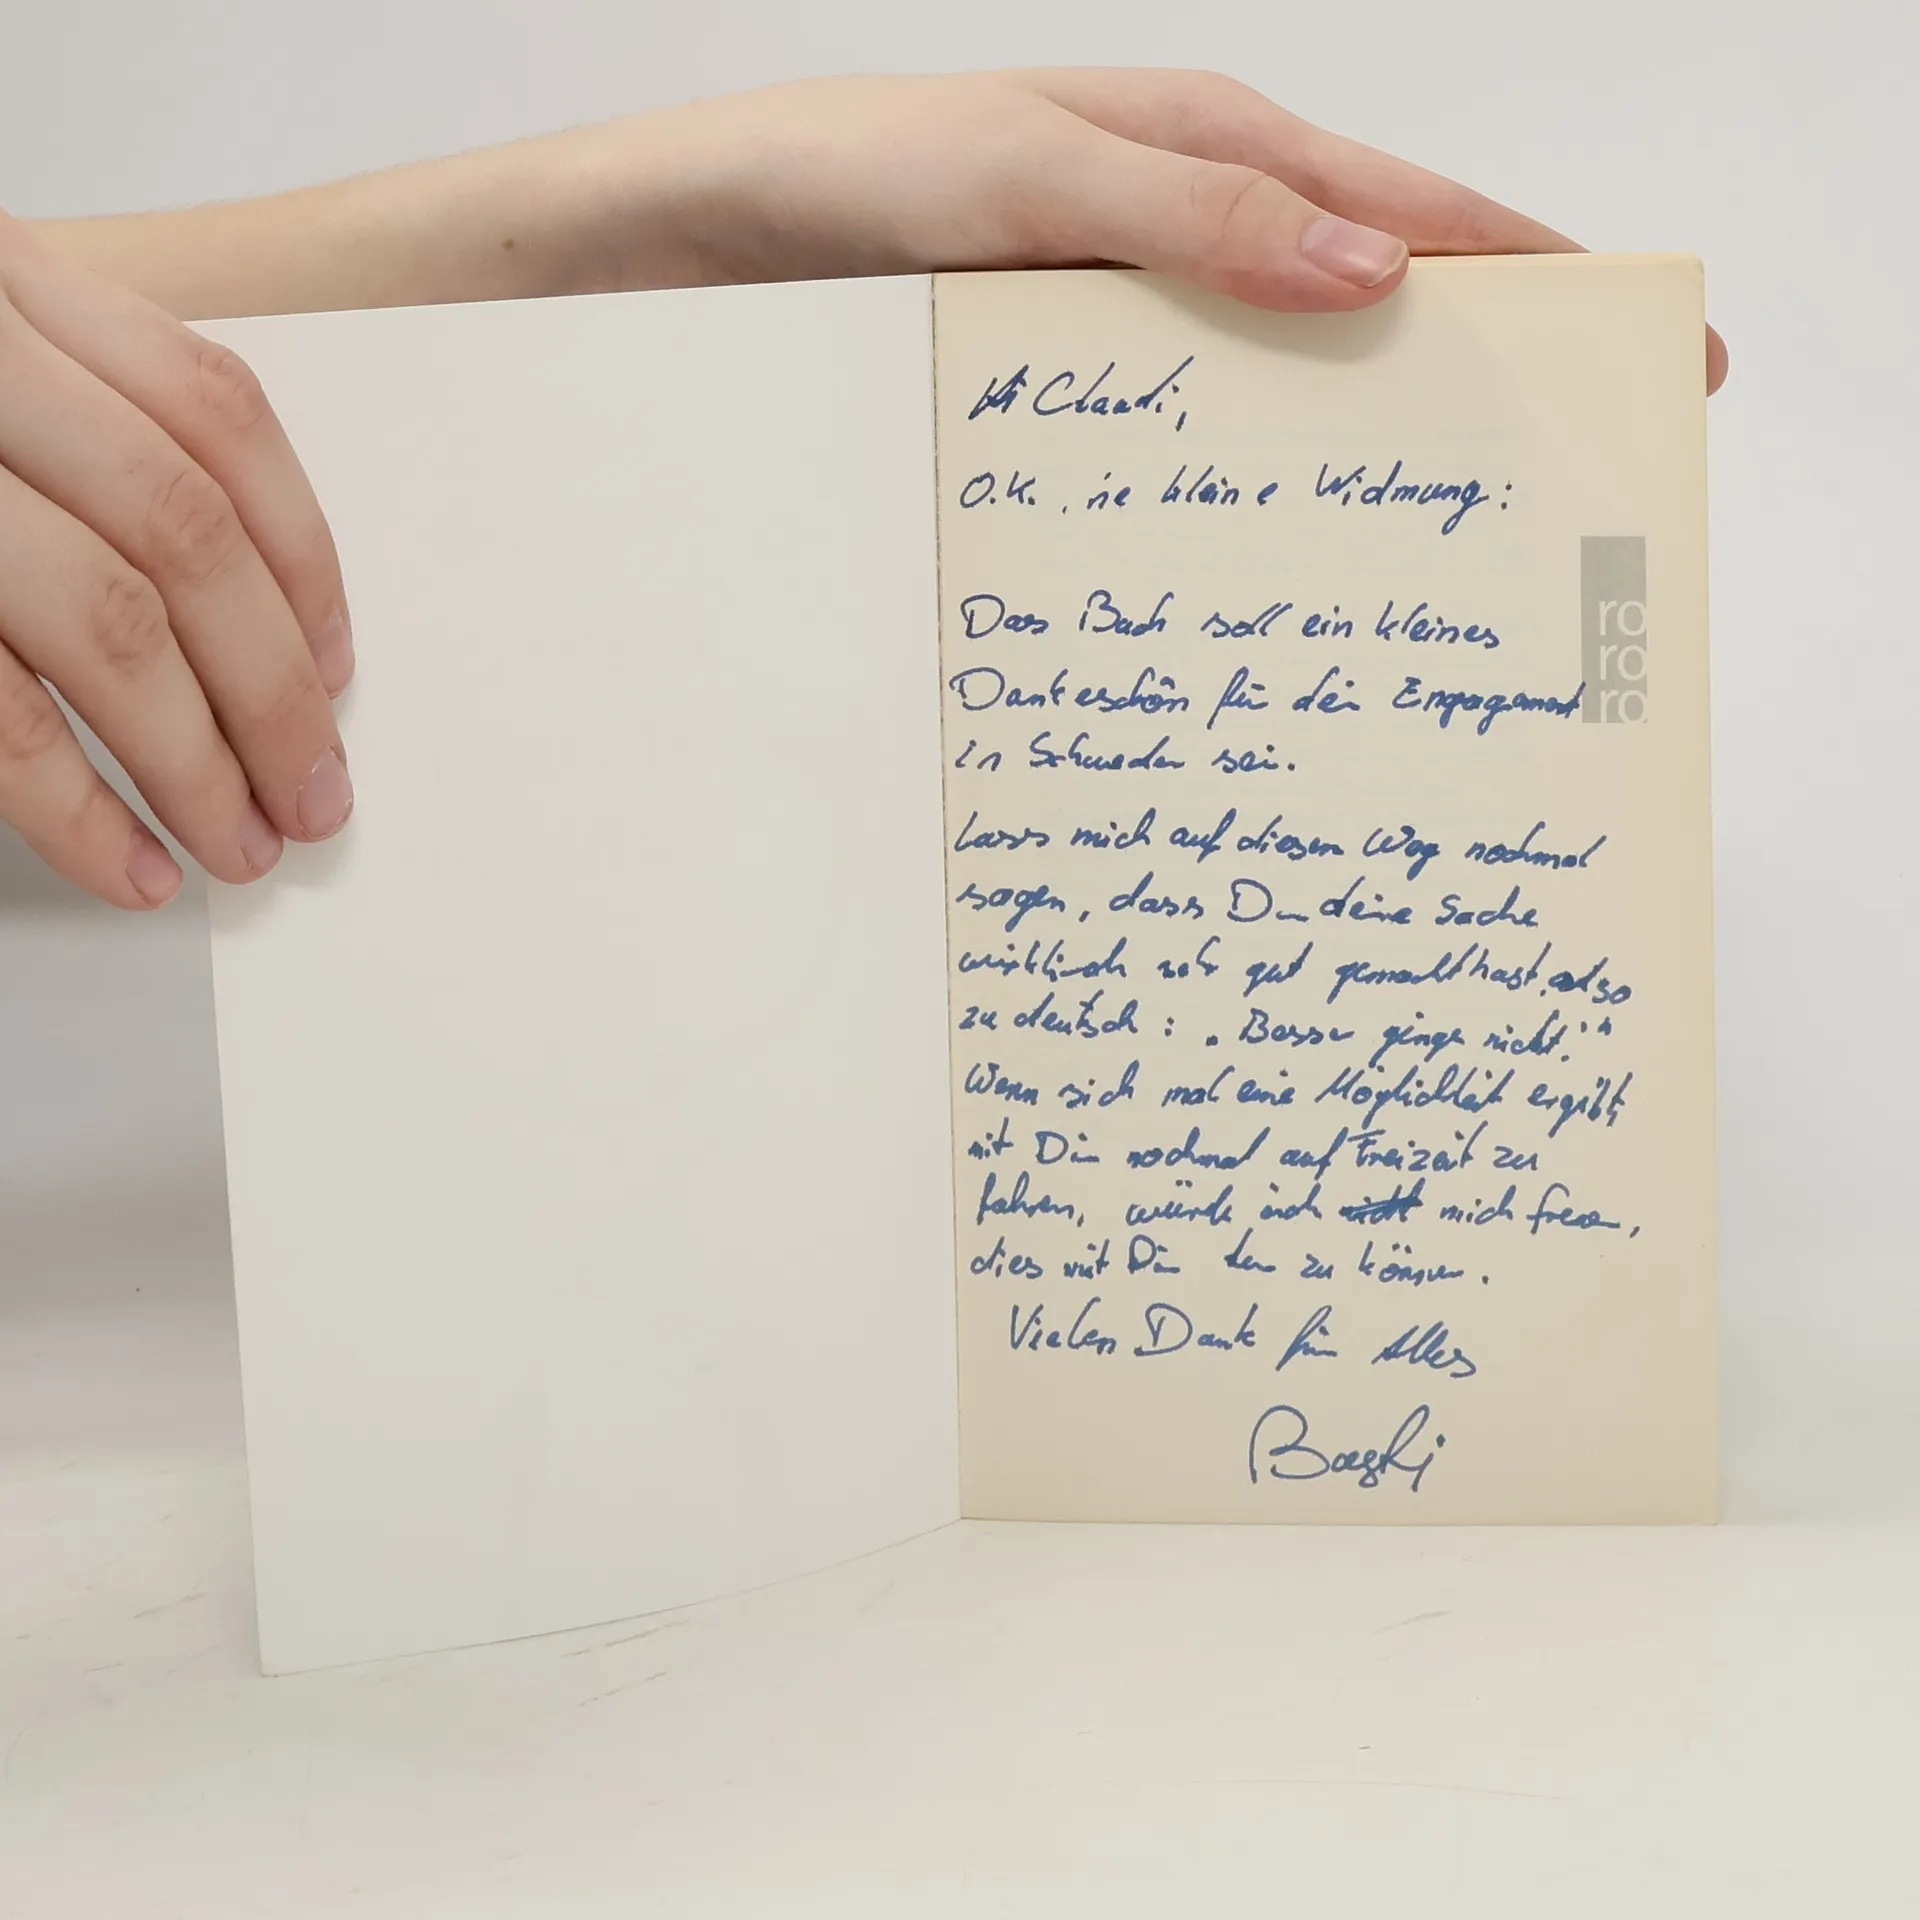 Hi Claudi,
O.K., ne kleine Widmung:
Das Buch soll ein kleines
Dankeschön für dein Engagement
in Schweden sei.
Lass mich auf diesem Weg nochmal
sagen, dass Du deine Sache
wirklich sehr gut gemacht hast, also
zu deutsch: „Besser ginge nicht!"
Wenn sich mal eine Möglichkeit ergibt,
mit Dir nochmal auf Freizeit zu
fahren, würde ich mich freuen,
dies mit Dir tun zu können.
Vielen Dank für Alles
ro
ro
ro